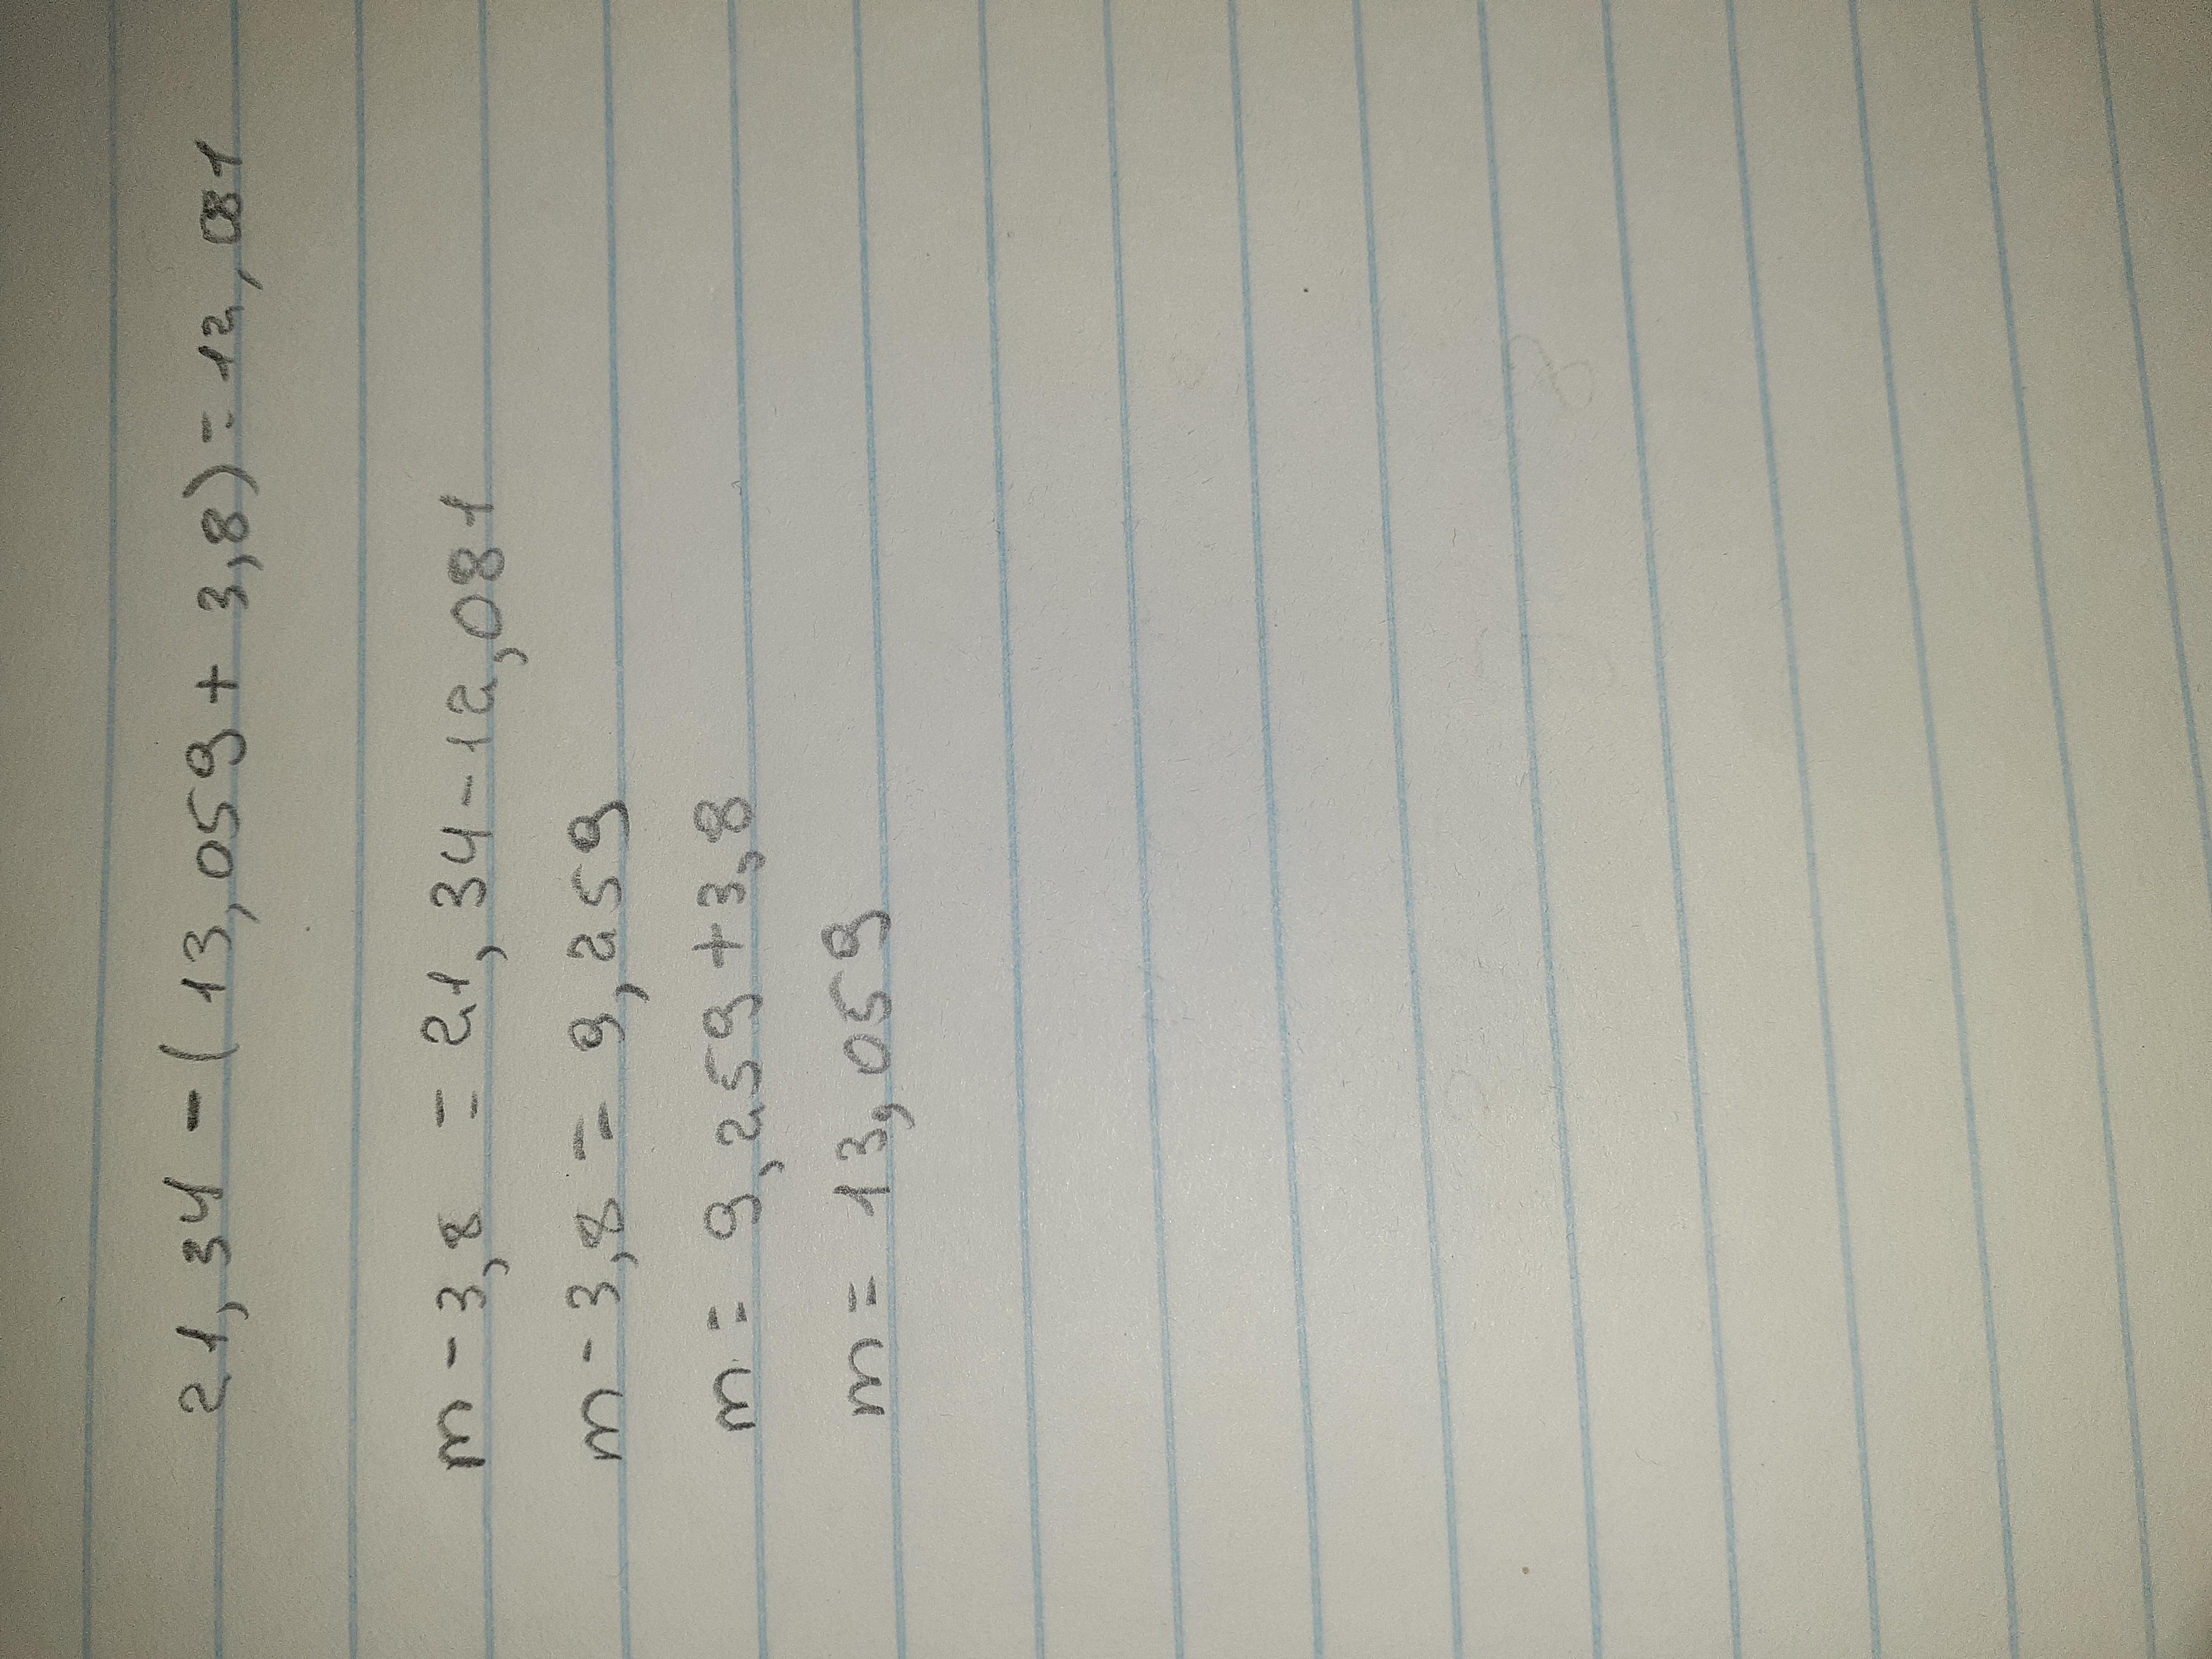 21,34 - (13,059 + 3,8) = 12,081
m - 3,8 = 21,34 - 12,081
m - 3,8 = 9,259
m = 9,259 + 3,8
m = 13,059